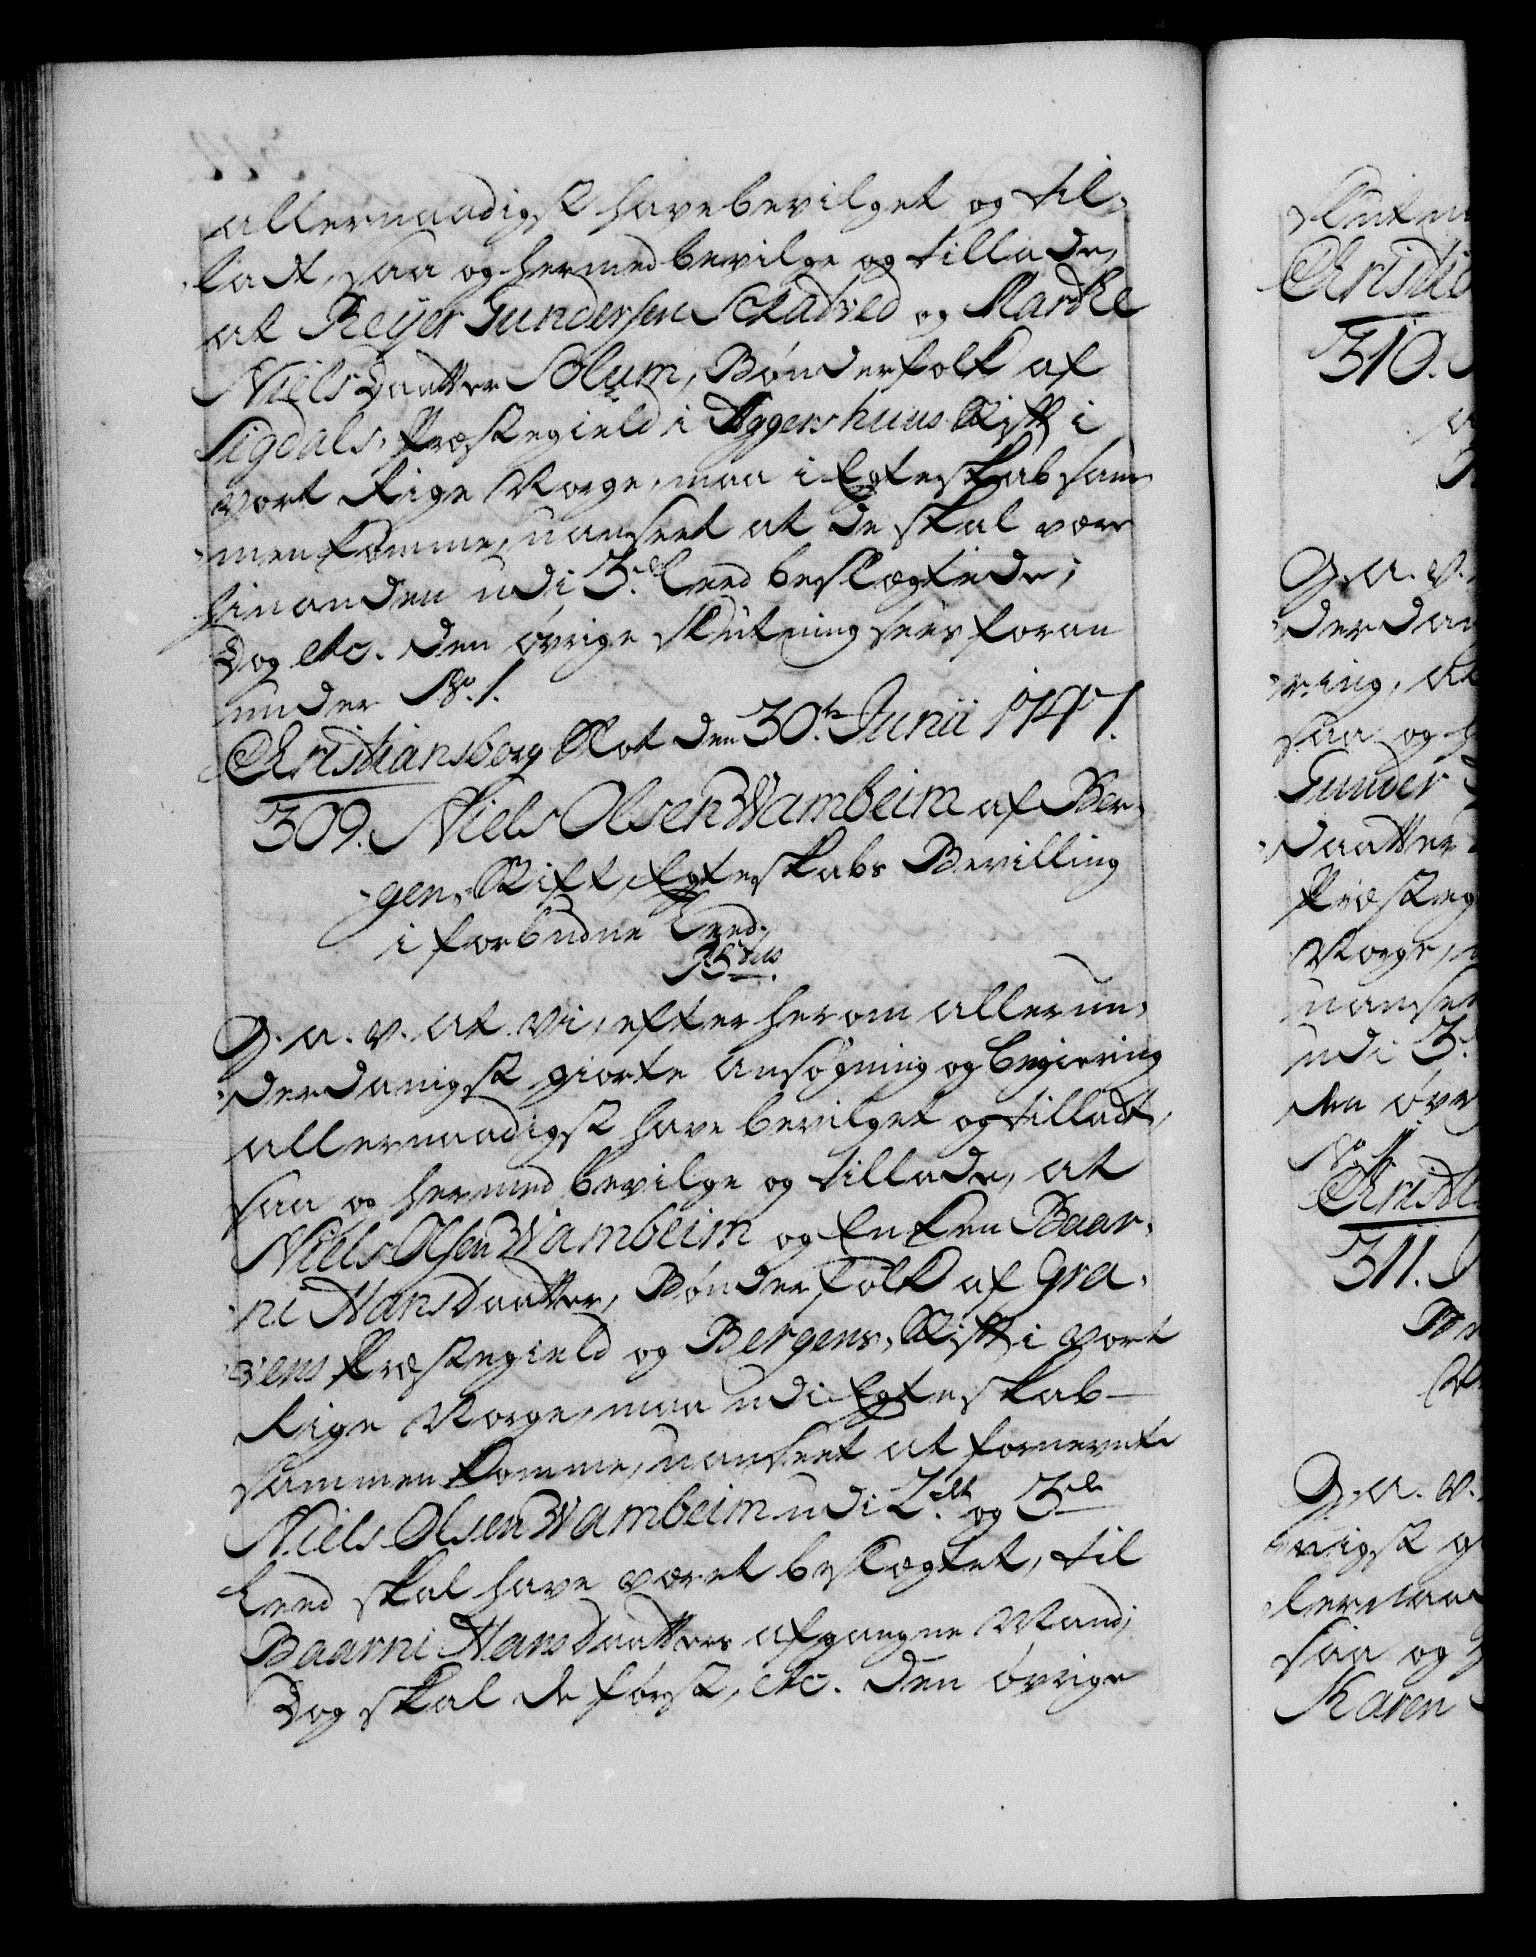 allernaadigst have bevilget og til-
ladt, saa og hermed bevilge og tillade,
at Reijer Gundersen Schadved og Marthe
Niels Daatter Solum, Bønderfolk af
Sigdals, Præstegield i Aggershuus Stift i
vort Rige Norge, maa i Egteskab sam-
men komme, uanseet at de skal være
hinanden udi 3die Leed beslægtede;
Dog etc. den øvrige slutning sees foran
under No. 1.
Christiansborg Slot den 30te Junii 1747.
309. Niels Olsen Wambeim af Ber-
gens Stift, Egteskabs Bevilling
i forbudne Leed.
G. A. V. at Vi, efter herom allerun-
derdanigst giorte ansøgning og begiering
allernaadigst have bevilget og tilladt,
saa og hermed bevilge og tillade, at
Niels Olsen Wambeim og Enken Baar-
ni Hansdaatter, Bønderfolk af Gra-
vens Præstegield og Bergens, Stift i vort
Rige Norge, maa udi Egteskab
sammen komme, uanseet at fornevnte
Niels Olsen Wambeim udi 2det og 3die
Leed skal have været beslægtet, til
Baarni Hansdaatters afgangne Mand;
Dog skal de først, etc. den øvrige
Christi
310.
G. A. V.
derdan
ring, al
saa og h
Gunder
daatter
Præsteg
Norge,
uansee
udi 3
den øvr
No. 1.
Christi
311.
G. A. V.
nigst g
lernaa
saa og h
Karen